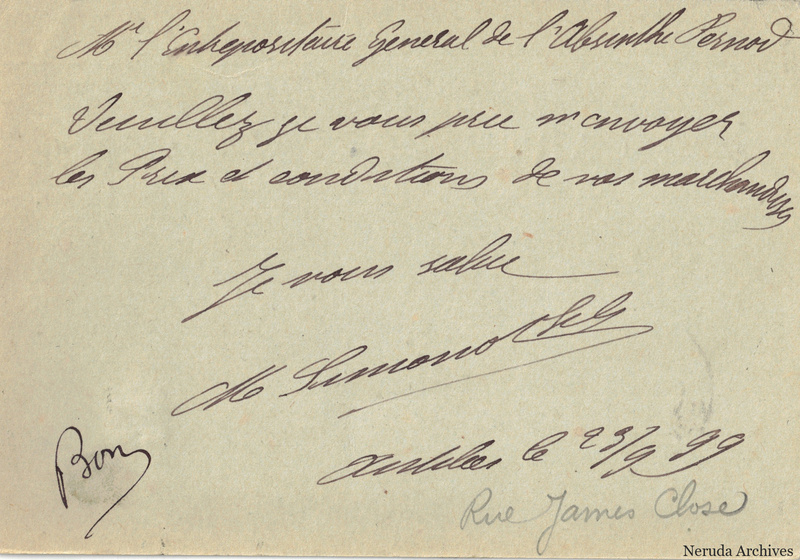 Mr l'Entrepositaire General de l'Absinthe Pernod
Veuillez je vous prie m'envoyer
les Prix et conditions de vos marchandises
Je vous salue
M Simono
Antibes le 23/9 99
Bon
Rue James Close
Neruda Archives